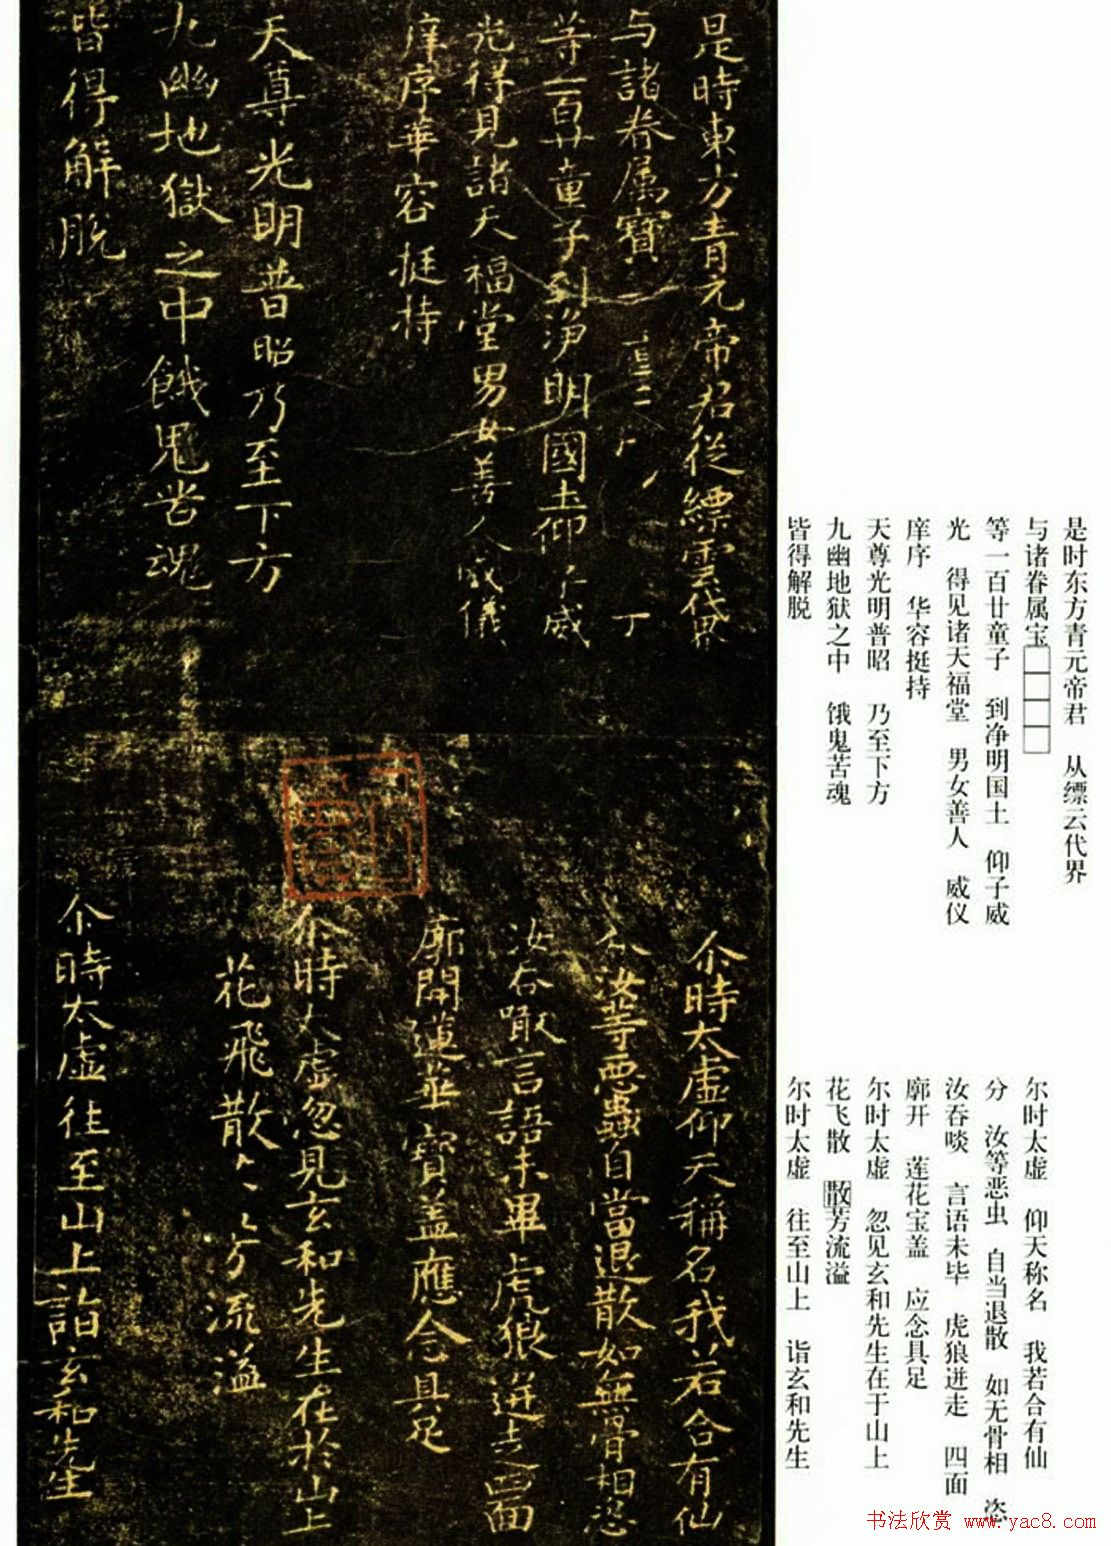 是時東方青元帝君從縹雲代界
与諸眷属寶
等一百廿童子到淨明國土仰子威
光得見諸天福堂男女善人威儀
庠序華容挺持
天尊光明普昭乃至下方
九幽地獄之中餓鬼苦魂
皆得解脱
尒時太虚仰天稱名我若合有仙
分汝等惡蟲自當退散如無骨相恣
汝吞噉言語未畢虎狼迸走四面
廓開蓮花寶盖應念具足
尒時太虚忽見玄和先生在於山上
花飛散〻〻芳流溢
尒時太虚往至山上詣玄和先生
是时东方青元帝君 从缥云代界
与诸眷属宝□□□□
等一百廿童子 到净明国土 仰子威
光 得见诸天福堂 男女善人 威仪
庠序 华容挺持
天尊光明普昭 乃至下方
九幽地狱之中 饿鬼苦魂
皆得解脱
尔时太虚 仰天称名 我若合有仙
分 汝等恶虫 自当退散 如无骨相 恣
汝吞啖 言语未毕 虎狼迸走 四面
廓开 莲花宝盖 应念具足
尔时太虚 忽见玄和先生在于山上
花飞散 散芳流溢
尔时太虚 往至山上 诣玄和先生
书法欣赏 www.yac8.com